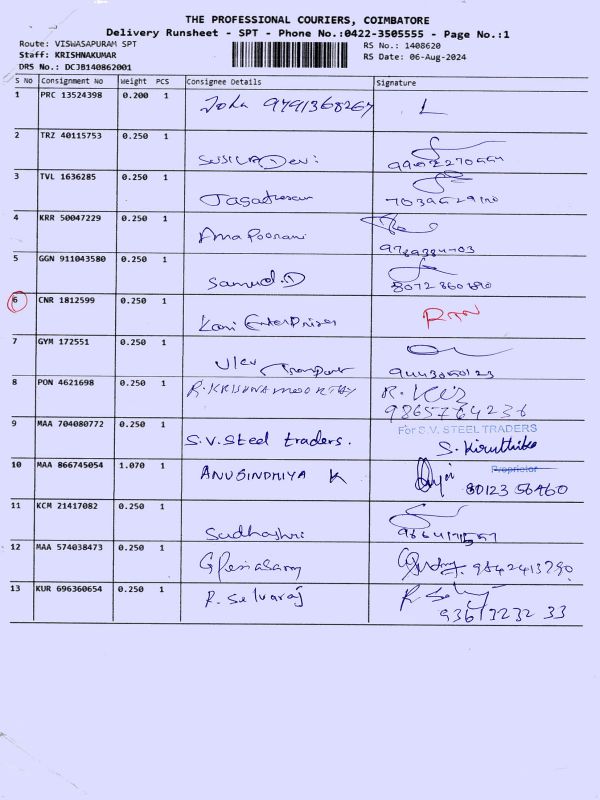 THE PROFESSIONAL COURIERS, COIMBATORE
Delivery Runsheet - SPT - Phone No.:0422-3505555 - Page No.:1
Route: VISWASAPURAM SPT
RS No.: 1408620
Staff: KRISHNAKUMAR
RS Date: 06-Aug-2024
DRS No.: DCJB140862001
S No Consignment No Weight PCS Consignee Details Signature
1 PRC 13524398 0.200 1
2 TRZ 40115753 0.250 1 SUSILA Devi
3 TVL 1636285 0.250 1
4 KRR 50047229 0.250 1 Anna Poorani
5 GGN 911043580 0.250 1
6 CNR 1812599 0.250 1 Kani Enterprises RTN
7 GYM 172551 0.250 1 Transport
8 PON 4621698 0.250 1 R. KRISHNAMOORTHY
9865764236
9 MAA 704080772 0.250 1 S.V. Steel traders. For S.V. STEEL TRADERS
S. Kiruthika
Proprietor
10 MAA 866745054 1.070 1 ANUSINDHIYA K
80123 56460
11 KCM 21417082 0.250 1 Sudhashri
12 MAA 574038473 0.250 1 9842413790
13 KUR 696360654 0.250 1 R. Selvaraj
93613232 33